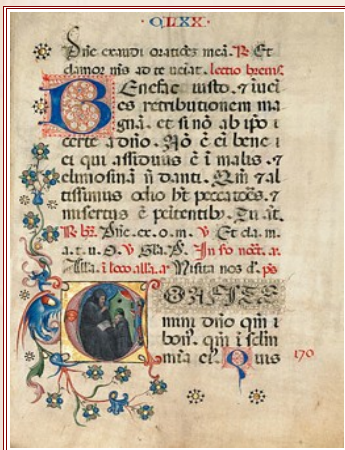 ·CLXX·
Dñe exaudi orationẽ meã. R Et
clamor mṡ ad te ueiat. lectio breuis.
Enefac iusto. ⁊ iueni
es retributionem ma
gnã. et si nõ ab ip̃o i
certe a dño. Nõ ẽ ei bene i
ei qui assiduus ẽ i malis. ⁊
elimosinã ñ danti. Qm̃ ⁊ al
tissimus odio h̃t peccatões. ⁊
misertus ẽ penitentib;. Tu ãt.
R ħ. Dñe. ex. o. m. V Et cla. m.
a. t. u. O. V Gla. P.
alla. ĩ loco alla. a Uisita nos d. ps
ONFITE
mini dño qm̃ i
bon9. qm̃ ĩ
mĩa ei9. Quis
170